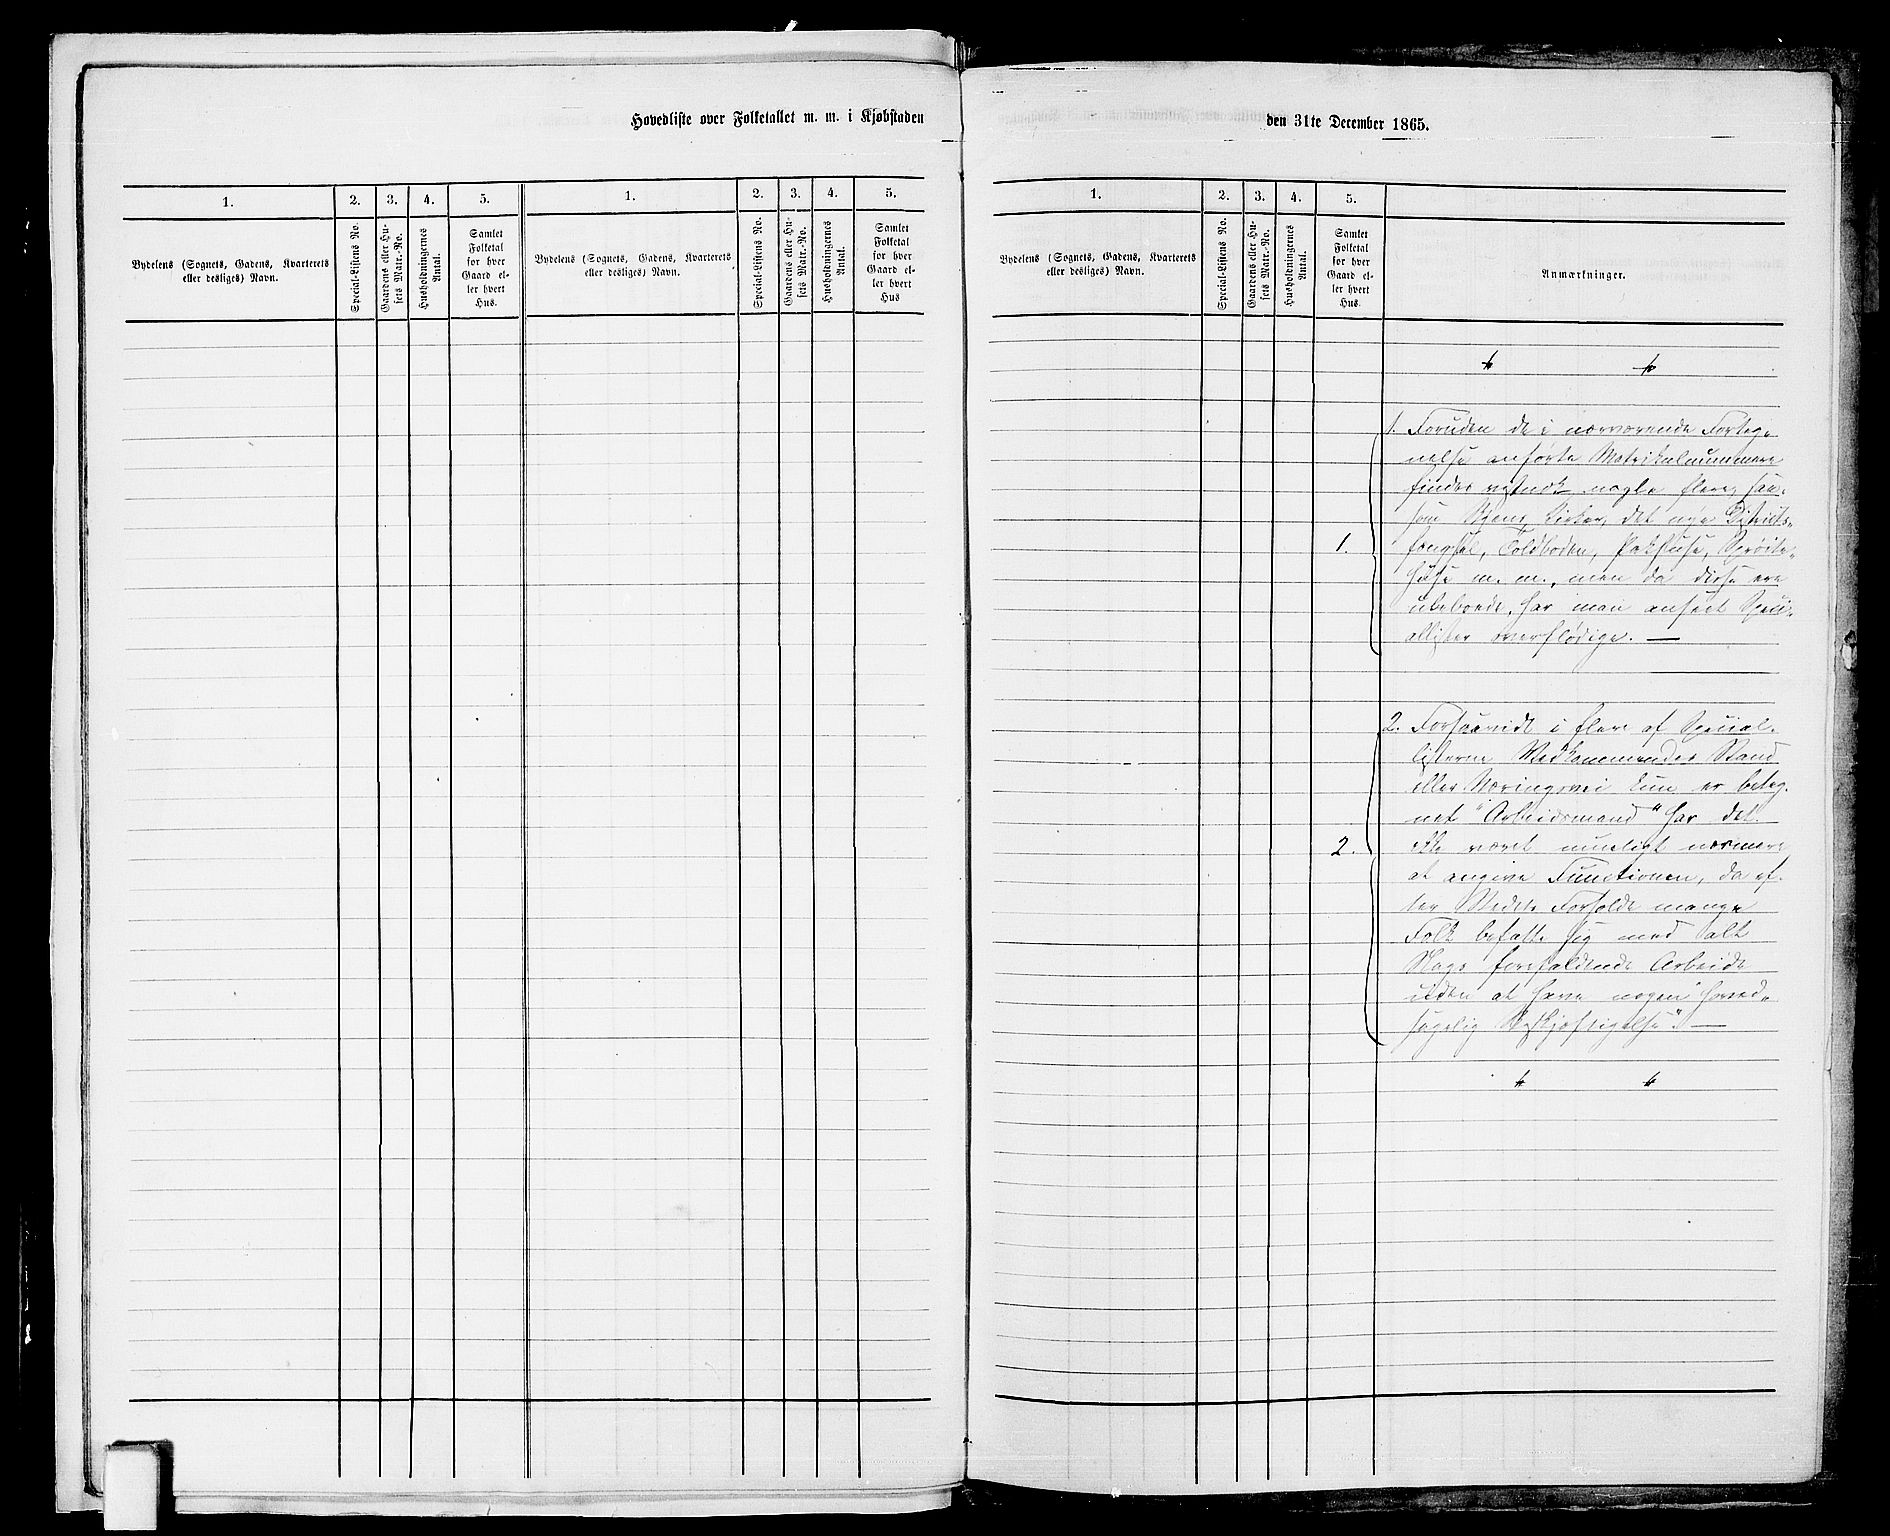 Hovedliste over Folketallet m. m. i Kjøbstaden
1. 2. 3. 4. 5. 1. 2. 3. 4. 5.
Bydelens (Sognets, Gadens, Kvarterets eller desliges) Navn.
Special-Listens No.
Gaardens eller Husets Matr.-No.
Husholdningernes Antal.
Samlet Folketal for hver Gaard eller hvert Hus.
Bydelens (Sognets, Gadens, Kvarterets eller desliges) Navn.
Special-Listens No.
Gaardens eller Husets Matr.-No.
Husholdningernes Antal.
Samlet Folketal for hver Gaard eller hvert Hus
den 31te December 1865.
1. 2. 3. 4. 5.
Bydelens (Sognets, Gadens, Kvarterets eller desliges) Navn.
Special-Listens No.
Gaardens eller Husets Matr.-No.
Husholdningernes Antal.
Samlet Folketal for hver Gaard eller hvert Hus.
Anmærkninger.
1. Foruden de i nærværende Forteg-
nelse anførte Matrikulnummere
findes nogle flere, saa-
som Kirker, det nye Distrikts-
1. fængsel, Toldboden, Pakhuse, Sprøite-
huse m. m., men da disse ere
ubeboede, har man anseet Speci-
allister overflødige. —
2. Forsaavidt i flere af Special-
listerne Vedkommendes Stand
eller Næringsvei kun er beteg-
net "Arbeidsmand" har det
2. ikke været mueligt nærmere
at angive Functionen, da ef-
ter Stedets Forholde mange
Folk befatte sig med alt
Slags forefaldende Arbeide
uden at have nogen "hoved-
sagelig Beskjæftigelse". —